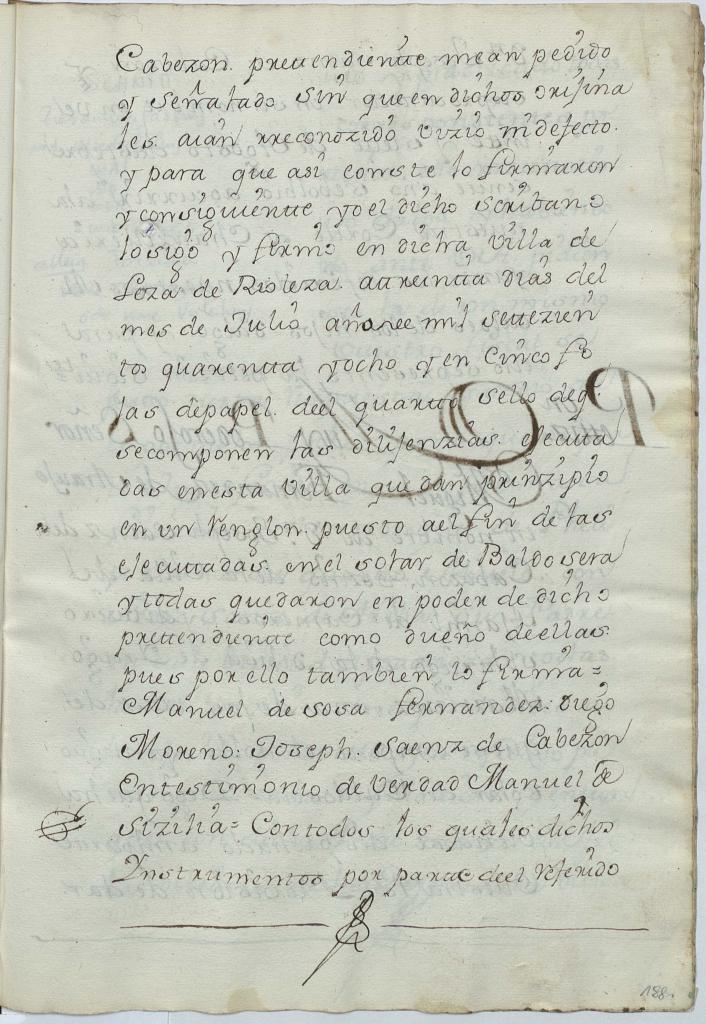 Cabezon. prettendientte mean pedido
y señalado sin que en dichos orijina
les aian rreconozido vizio ni defecto.
y para que asi conste lo firmaron
y consiguientte yo el dicho scribano
lo signo y firmo en dicha villa de
Loza de Rioleza. a ttreintta dias del
mes de Julio año de mil settezien
tos quarentta y ocho y en Cinco fo
las de papel. deel quartto sello deq.
se componen las dilijenzias. ejecuta
das en esta Villa que dan prinzipio
en un Renglon. puesto a el fin de las
ejecuttadas. en el solar de Baldosera
y todas quedaron en poder de dicho
prettendientte como dueño de ellas.
pues por ello tambien lo firma =
Manuel de sosa fernandez: Diego
Moreno: Joseph. Saenz de Cabezon
En testimonio de verdad Manuel de
Sizilia = Con todos los quales dichos
Ynstrumentos por parte deel referido
188.